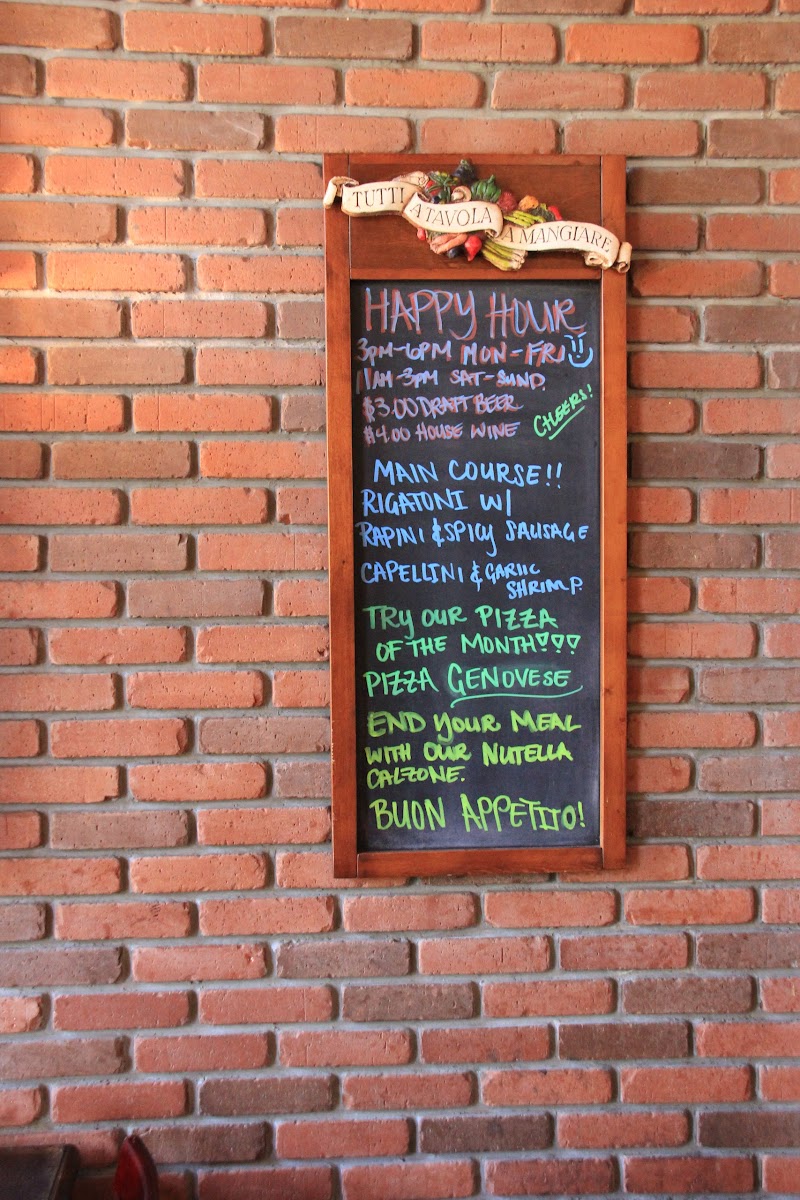 TUTTI A TAVOLA A MANGIARE
HAPPY HOUR
3PM-6PM MON-FRI
11AM-3PM SAT-SUND.
$3.00 DRAFT BEER
$4.00 HOUSE WINE
CHEERS!
MAIN COURSE!!
RIGATONI W/
RAPINI & SPICY SAUSAGE
CAPELLINI & GARLIC
SHRIMP.
TRY OUR PIZZA
OF THE MONTH!!!
PIZZA GENOVESE
END YOUR MEAL
WITH OUR NUTELLA
CALZONE.
BUON APPETITO!